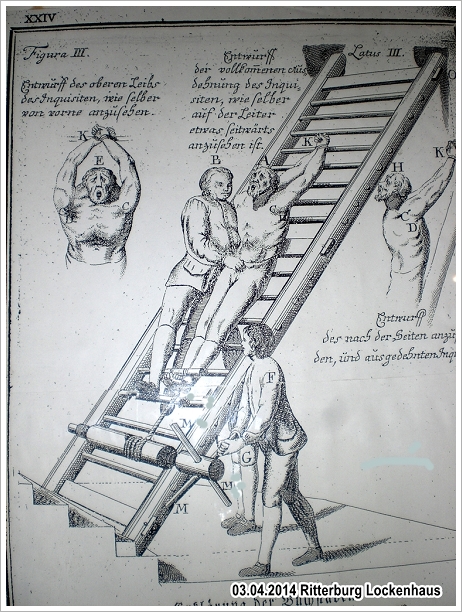 XXIV
Figura III.
Latus III.
Entwurff des oberen Leibs
des Inquisiten, wie selber
von vorne anzusehen.
Entwurff
der vollkommenen Aus
dehnung des Inqui
siten, wie selber
auf der Leiter
etwas seitwärts
anzusehen ist.
K
E
B
A
K
H
K
C
D
Entwurff
des nach der Seiten anzu
den, und ausgedehnten Inq
F
G
M
M
M
der Buchstaben
03.04.2014 Ritterburg Lockenhaus